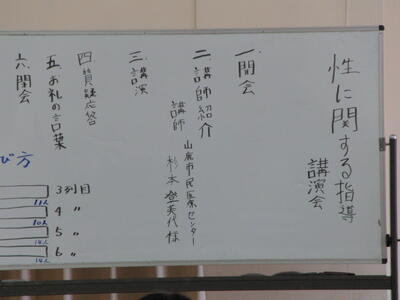 性に関する指導
講演会
一. 開会
二. 講師紹介
講師 山鹿市民医療センター
杉本登美代様
三. 講演
四. 質疑応答
五. お礼の言葉
六. 閉会
び方
3列目
11人
4 〃
10人
5 〃
14人
6 〃
14人